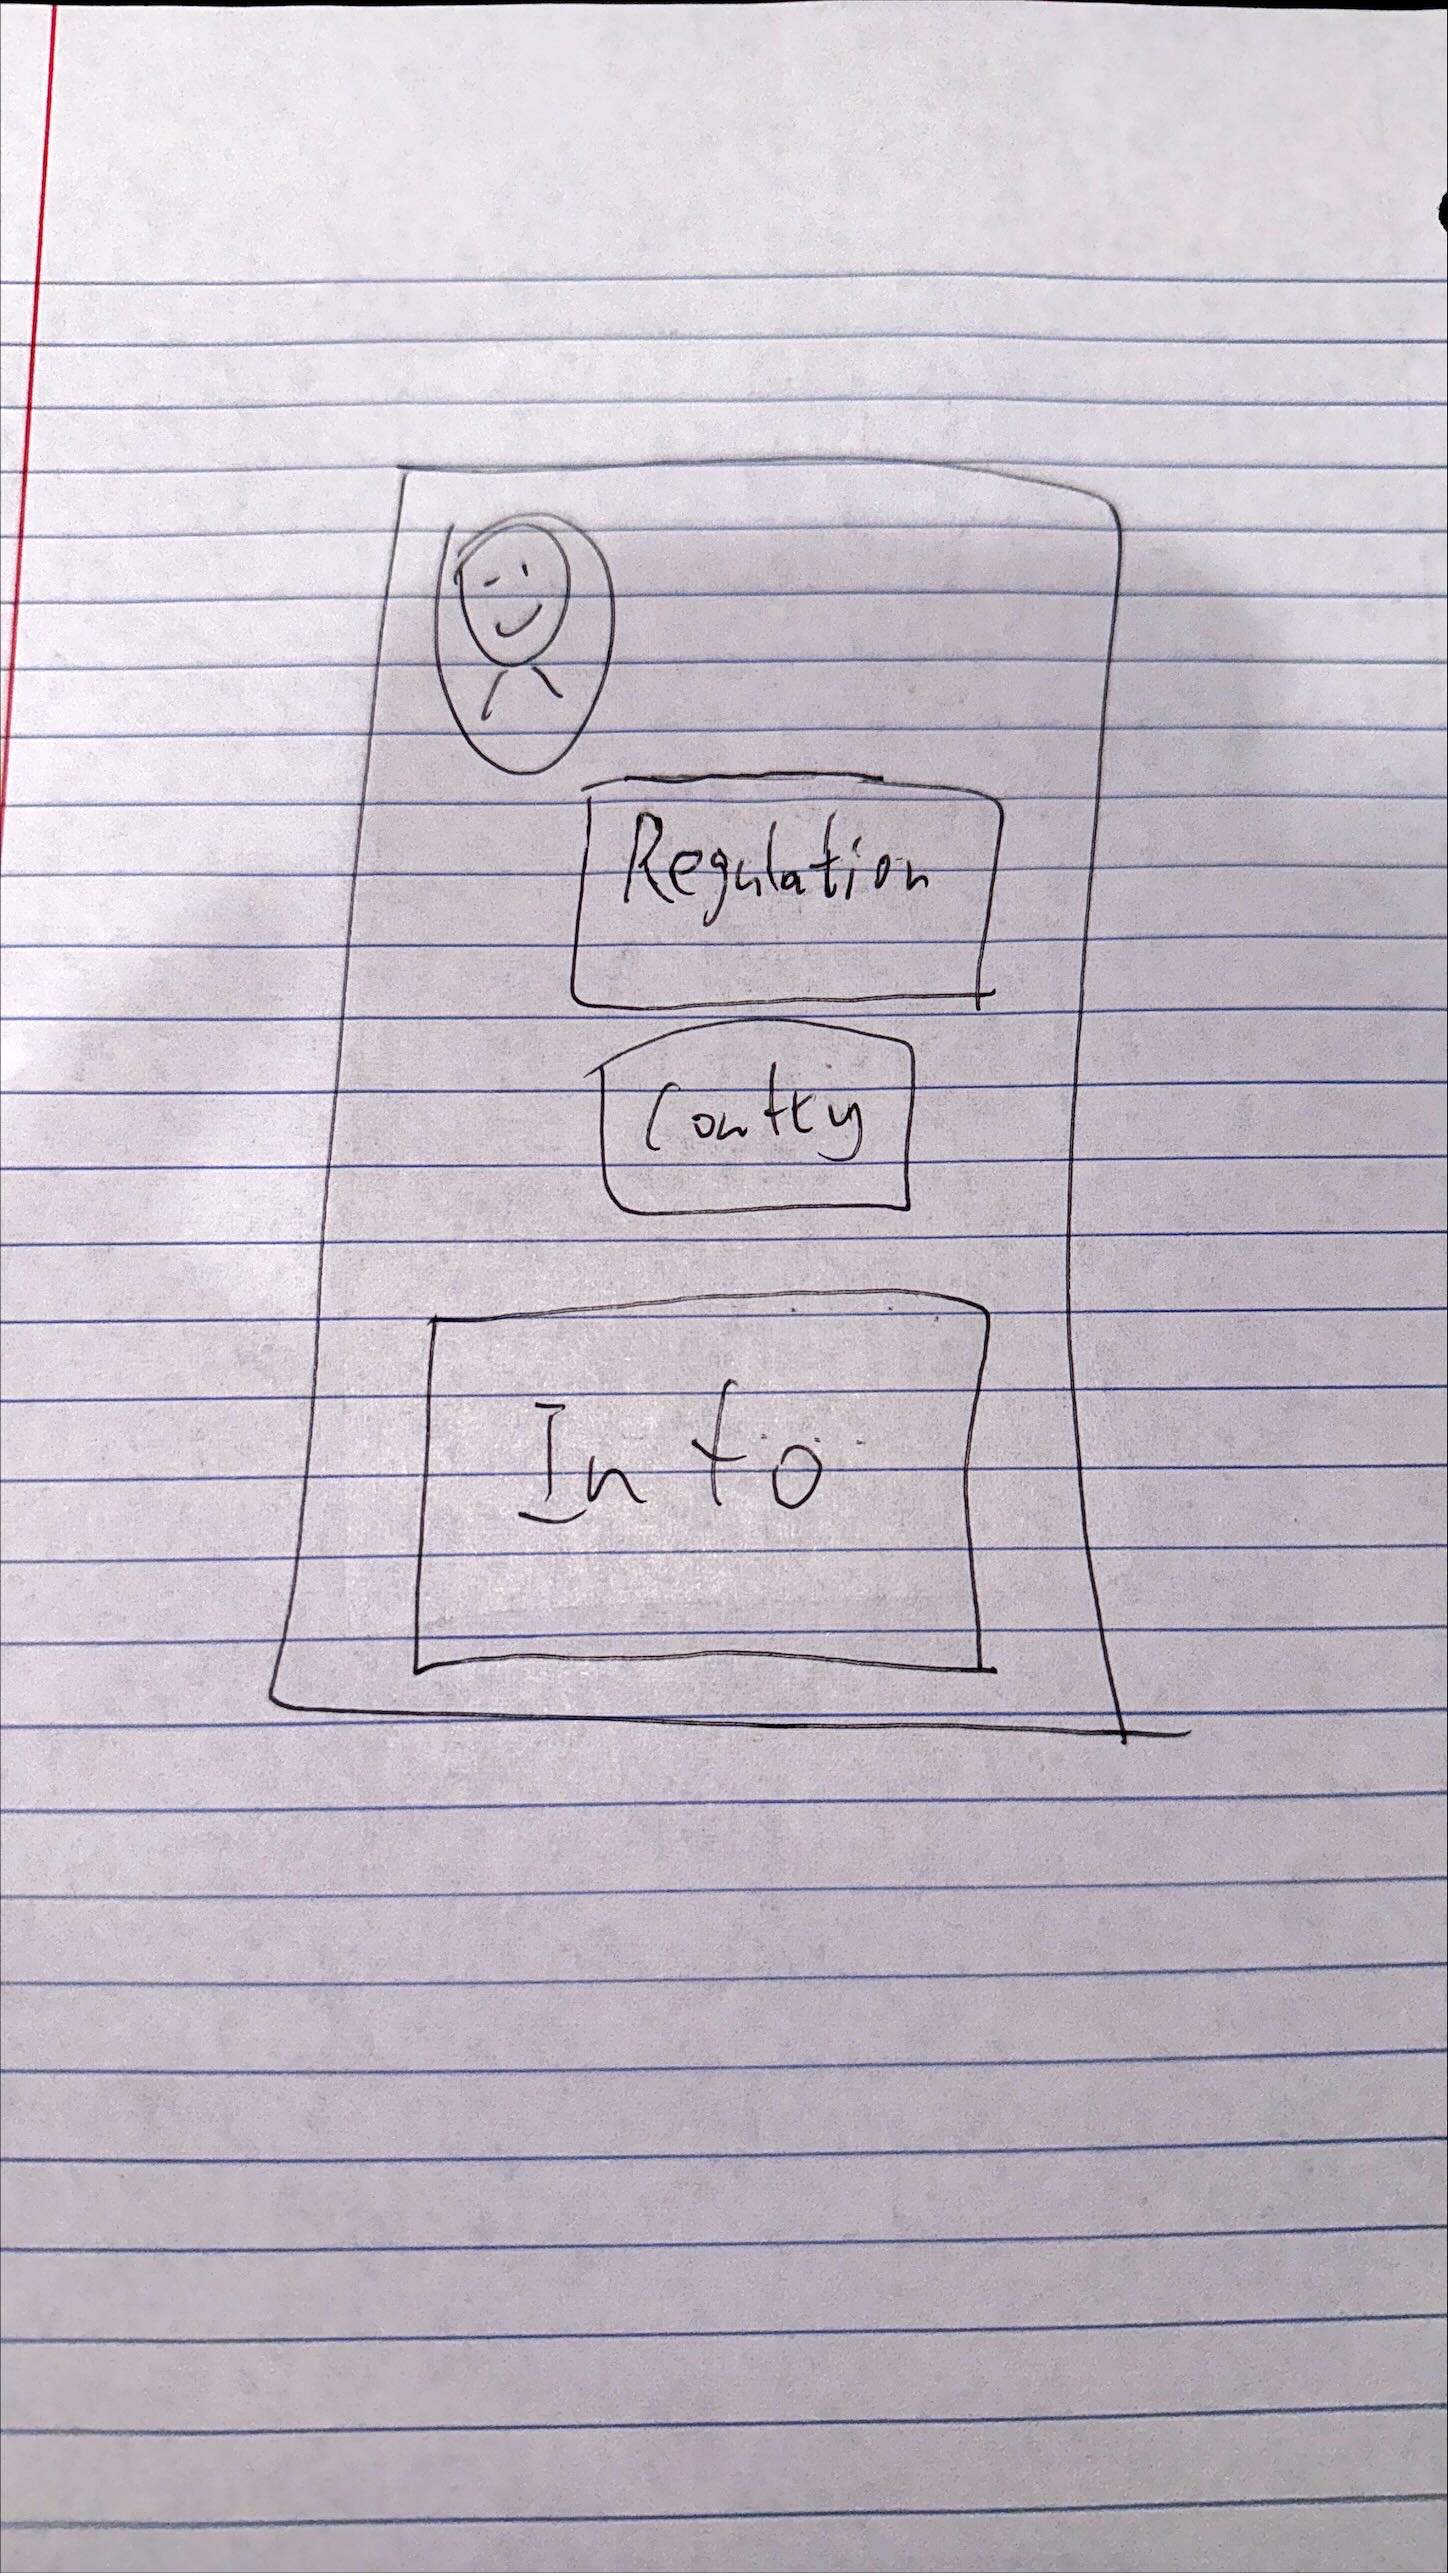 Regulation
Contry
Info